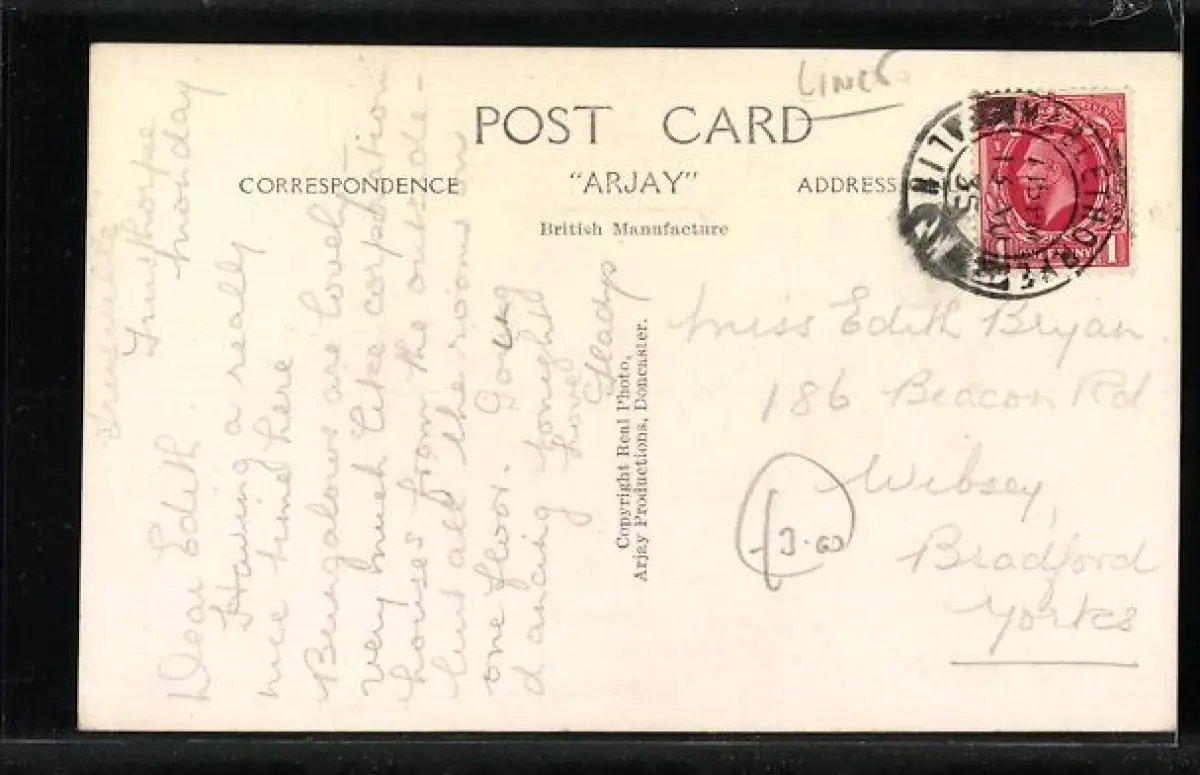 LINCS
POST CARD
CORRESPONDENCE
"ARJAY"
ADDRESS
British Manufacture
MABLETHORPE
LIN
15 PM
15 JY
35
1
1
Trusthorpe
Monday
Dear Edith
Having a really
nice time here
Bungalows are lovely
very much like corporation
houses from the outside -
but all the rooms on
one floor. Going
dancing tonight
Love
Gladys
Copyright Real Photo,
Arjay Productions, Doncaster.
Miss Edith Bryan
186 Beacon Rd
Wibsey,
Bradford
Yorks